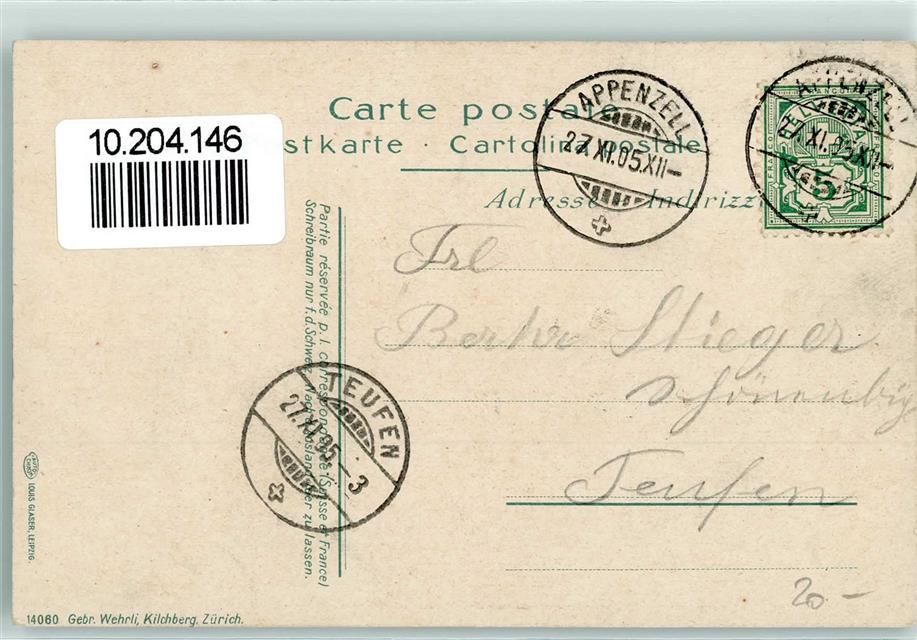 Carte postale
10.204.146
stkarte · Cartolina postale
APPENZELL
27.XI.05.XII—
APPENZELL
XI.05.XII—
5
Adresse Indirizz
Partie réservée p. l. correspondance (Suisse et France)
Schreibraum nur f. d. Schweiz. Nach Ausland leer zu lassen.
Frl
Stieger
TEUFEN
27.XI.05.—3
Teufen
LOUIS GLASER, LEIPZIG.
20.—
14060 Gebr. Wehrli, Kilchberg, Zürich.